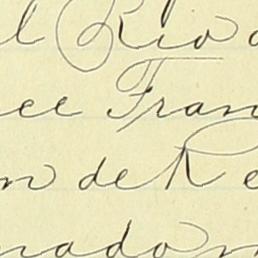 l Rio d
ee Fran
n de Re
nador